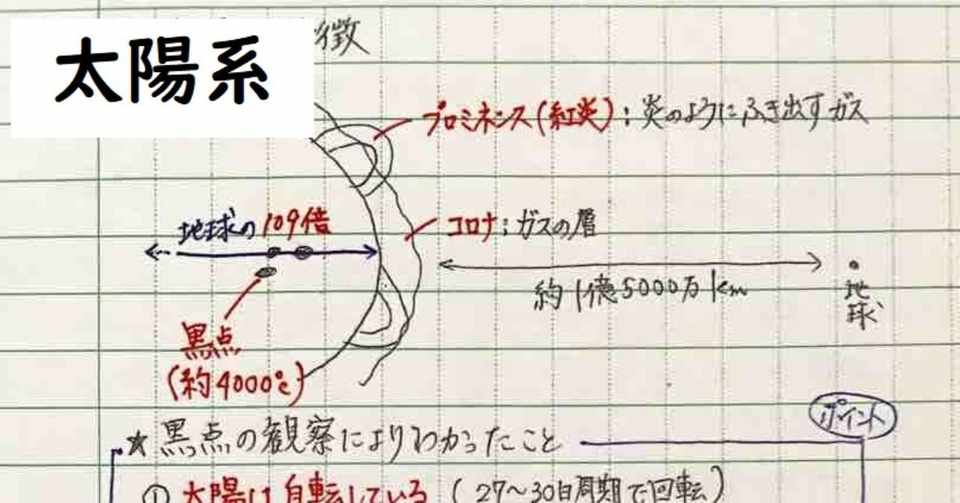 太陽系
徴
プロミネンス(紅炎):炎のようにふき出すガス
地球の109倍
コロナ:ガスの層
約1億5000万km
地球
黒点
(約4000℃)
ポイント
★黒点の観察によりわかったこと
① 太陽は自転している(27〜30日周期で回転)